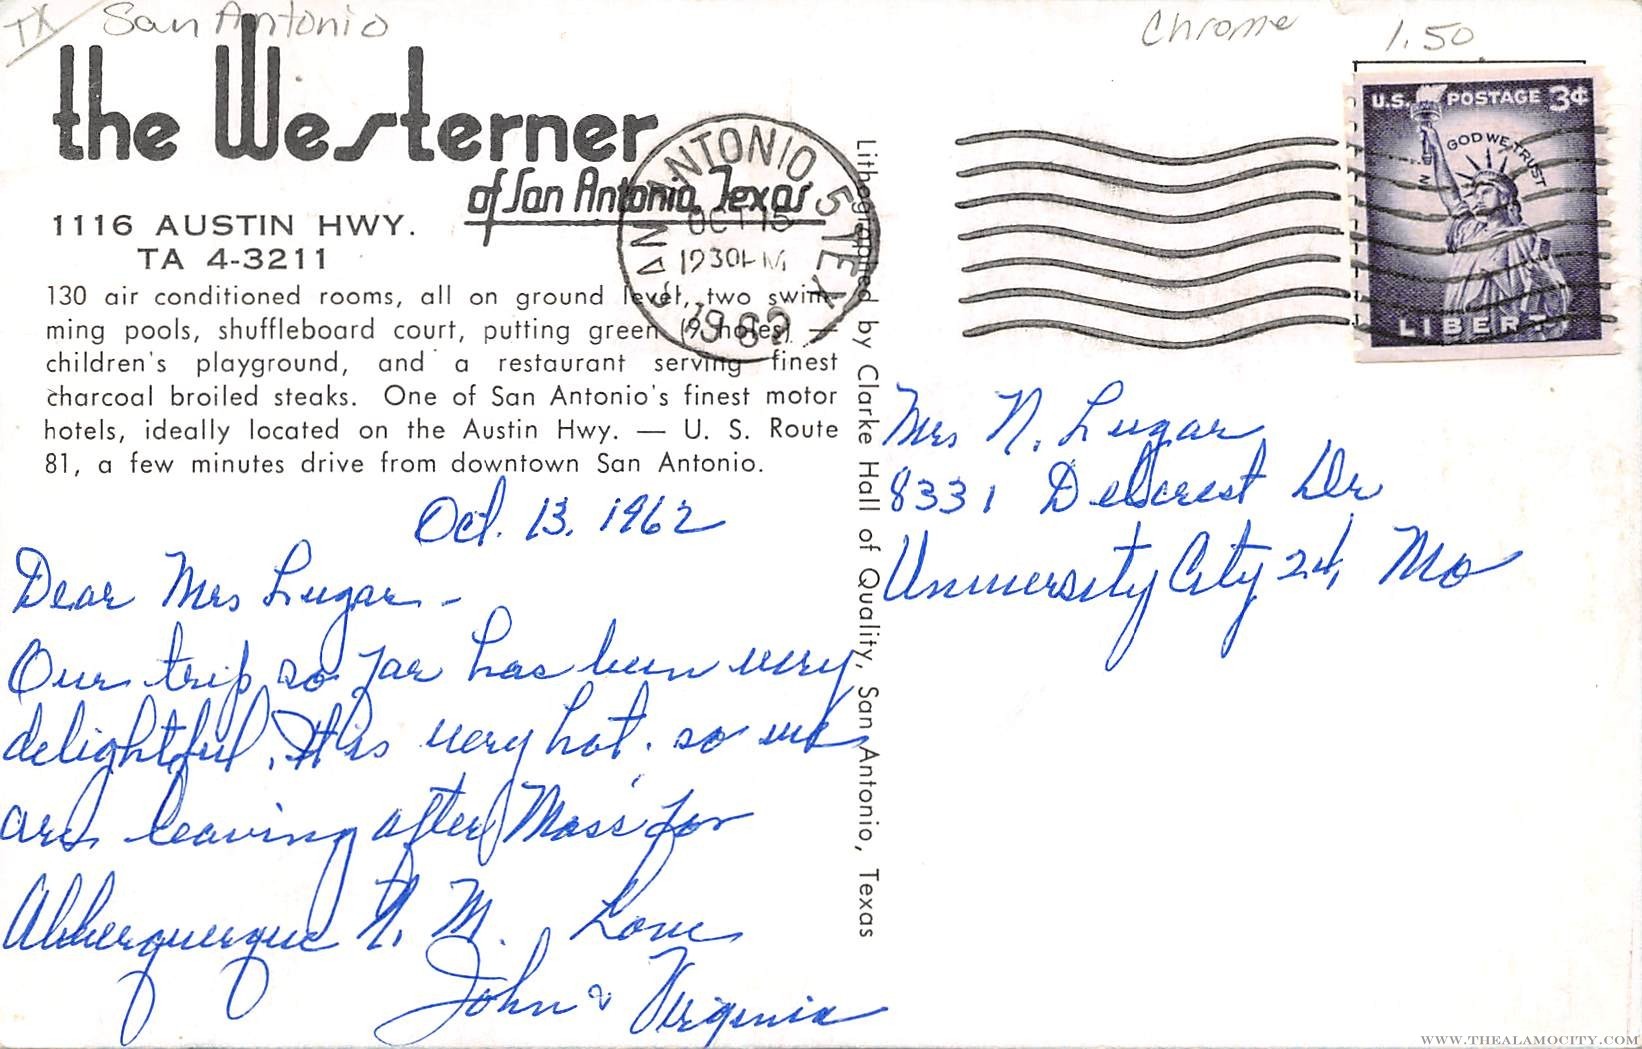 TX San Antonio
Chrome 1.50
the Westerner
of San Antonio, Texas
1116 AUSTIN HWY.
TA 4-3211
130 air conditioned rooms, all on ground level, two swim-
ming pools, shuffleboard court, putting green (9 holes) —
children's playground, and a restaurant serving finest
charcoal broiled steaks. One of San Antonio's finest motor
hotels, ideally located on the Austin Hwy. — U. S. Route
81, a few minutes drive from downtown San Antonio.
SAN ANTONIO 5 TEX
OCT 15
1230PM
1962
U.S. POSTAGE 3¢
IN GOD WE TRUST
LIBERTY
Lithographed by Clarke Hall of Quality, San Antonio, Texas
Oct. 13. 1962
Dear Mrs Lugar -
Our trip so far has been very
delightful. It is very hot. so we
are leaving after Mass for
Albuerquerque N. M. Love
John & Virginia
Mrs N. Lugar
8331 Delcrest Dr
University City 24, Mo
WWW.THEALAMOCITY.COM